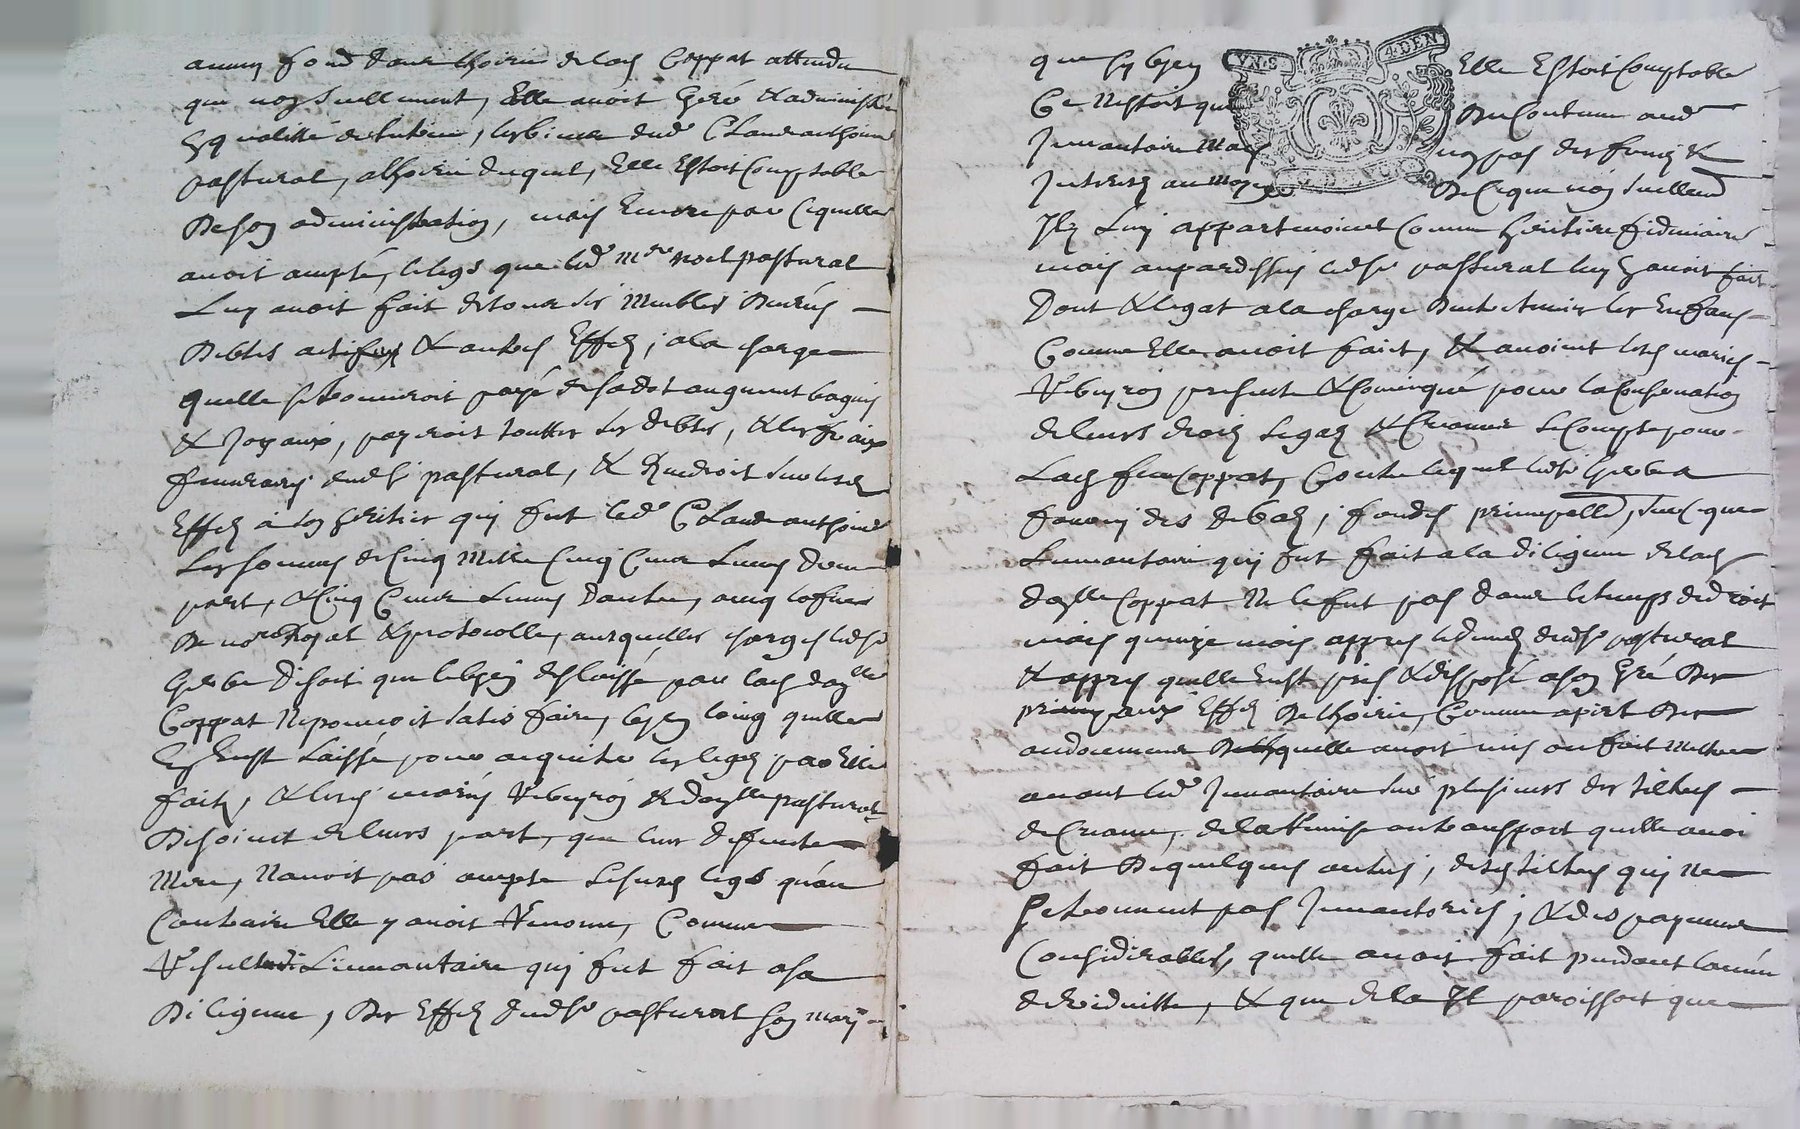 aucun fond dans lhoirie de lad Coppat attendu
que non seullement, Elle avoit Geré & administré
En qualité de tutrice, les biens dud Claude anthoine
pastural, a lhoirie duquel, Elle Estoit Comptable
De son administration, mais Encore par Cequelle
avoit accepté, le legs que led mre noel pastural
Luy avoit fait de tous ses Meubles Denrées
Debtes actifves & autres Effes, a la charge
quelle se trouveroit payé de sa dot augment bagues
& Joyaux, payeroit touttes ses debtes, & les fraix
funeraires dud Sr pastural, & Rendroit sur lesd
Effes à son heritier qui fut led Claude anthoine
Les sommes de Cinq Mille Cinq Cens Livres dune
part, & Cinq Cens Livres dautre, avec loffice
De nore Royal & protocolle, ausquelles charges led Sr
disoit que le bien deslaissé par lad daylle
Coppat Ne pouvoit satisfaire, bien loing quelle
En Eust Laissé pour acquiter les legs par Elle
faits, & lesd mariés Veheyron & daylle pastural
Disoient de leurs part, que leur deffuncte
Mere, Navoit pas accepté lesusd legs quau
Contraire Elle y avoit Renoncé, Comme
Resulte de Linvantaire quy fut fait a sa
Diligence, Des Effes dud Sr pastural son mary
que sy bien Elle Estoit Comptable
Ce Nestoit que Du Contenu aud
Invantaire Mais non pas des fruis &
Interes au moyen De Ce que non seullemt
Ilz Luy appartenoient Comme heritiere fiduciaire
mais aupardessus led Sr pastural luy En avoit fait
Dont & legat a la charge Dentretenir les Enfans
Comme Elle avoit fait, & avoient lesd mariés
Veheyron presenté & Comuniqué pour la Conservation
de leurs droits legas & Creances le Compte pour
Lad feue Coppat, Contre lequel led Sr
fourny des debas, fondés principallemt, sur ce que
Linvantaire quy fut fait a la diligence de lad
daylle Coppat Ne le fut pas dans le temps de droit
mais quinze mois appres le deces dud Sr pastural
& appres quelle Eust pris & disposé a son Gré Des
principaux Effes De lhoirie, Comme apert Des
endocemens Desquelle avoit mis ou fait Mettre
avant led Invantaire sur plusieurs des tiltres
de Creance, de la Remise ou transport quelle avoit
fait De quelques autres, desd tiltres quy ne
se trouvent pas Invantoriés, & des payemens
Considerables, quelle avoit fait pendant lannée
de viduitte, & que de la Il paroissoit que
VN S 4 DEN